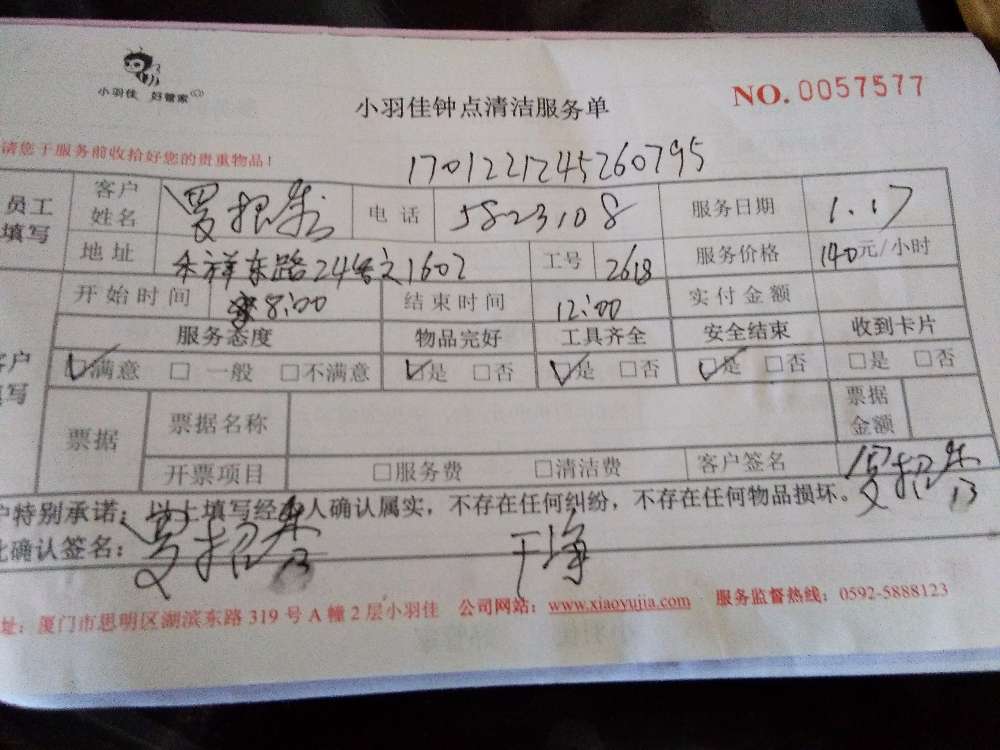 小羽佳 好管家
小羽佳钟点清洁服务单
NO. 0057577
请您于服务前收拾好您的贵重物品!
1701221245260795
员工填写 客户姓名 罗招 电话 5823108 服务日期 1.17
地址 祥东路24 1602 工号 2618 服务价格 140元/小时
开始时间 8:00 结束时间 12:00 实付金额
服务态度 物品完好 工具齐全 安全结束 收到卡片
客户填写 ☑满意 □一般 □不满意 ☑是 □否 ☑是 □否 ☑是 □否 □是 □否
票据 票据名称 票据金额
开票项目 □服务费 □清洁费 客户签名 罗招
户特别承诺:以上填写经本人确认属实,不存在任何纠纷,不存在任何物品损坏。
此确认签名: 罗招 干净
址:厦门市思明区湖滨东路319号A幢2层小羽佳 公司网站:www.xiaoyujia.com 服务监督热线:0592-5888123